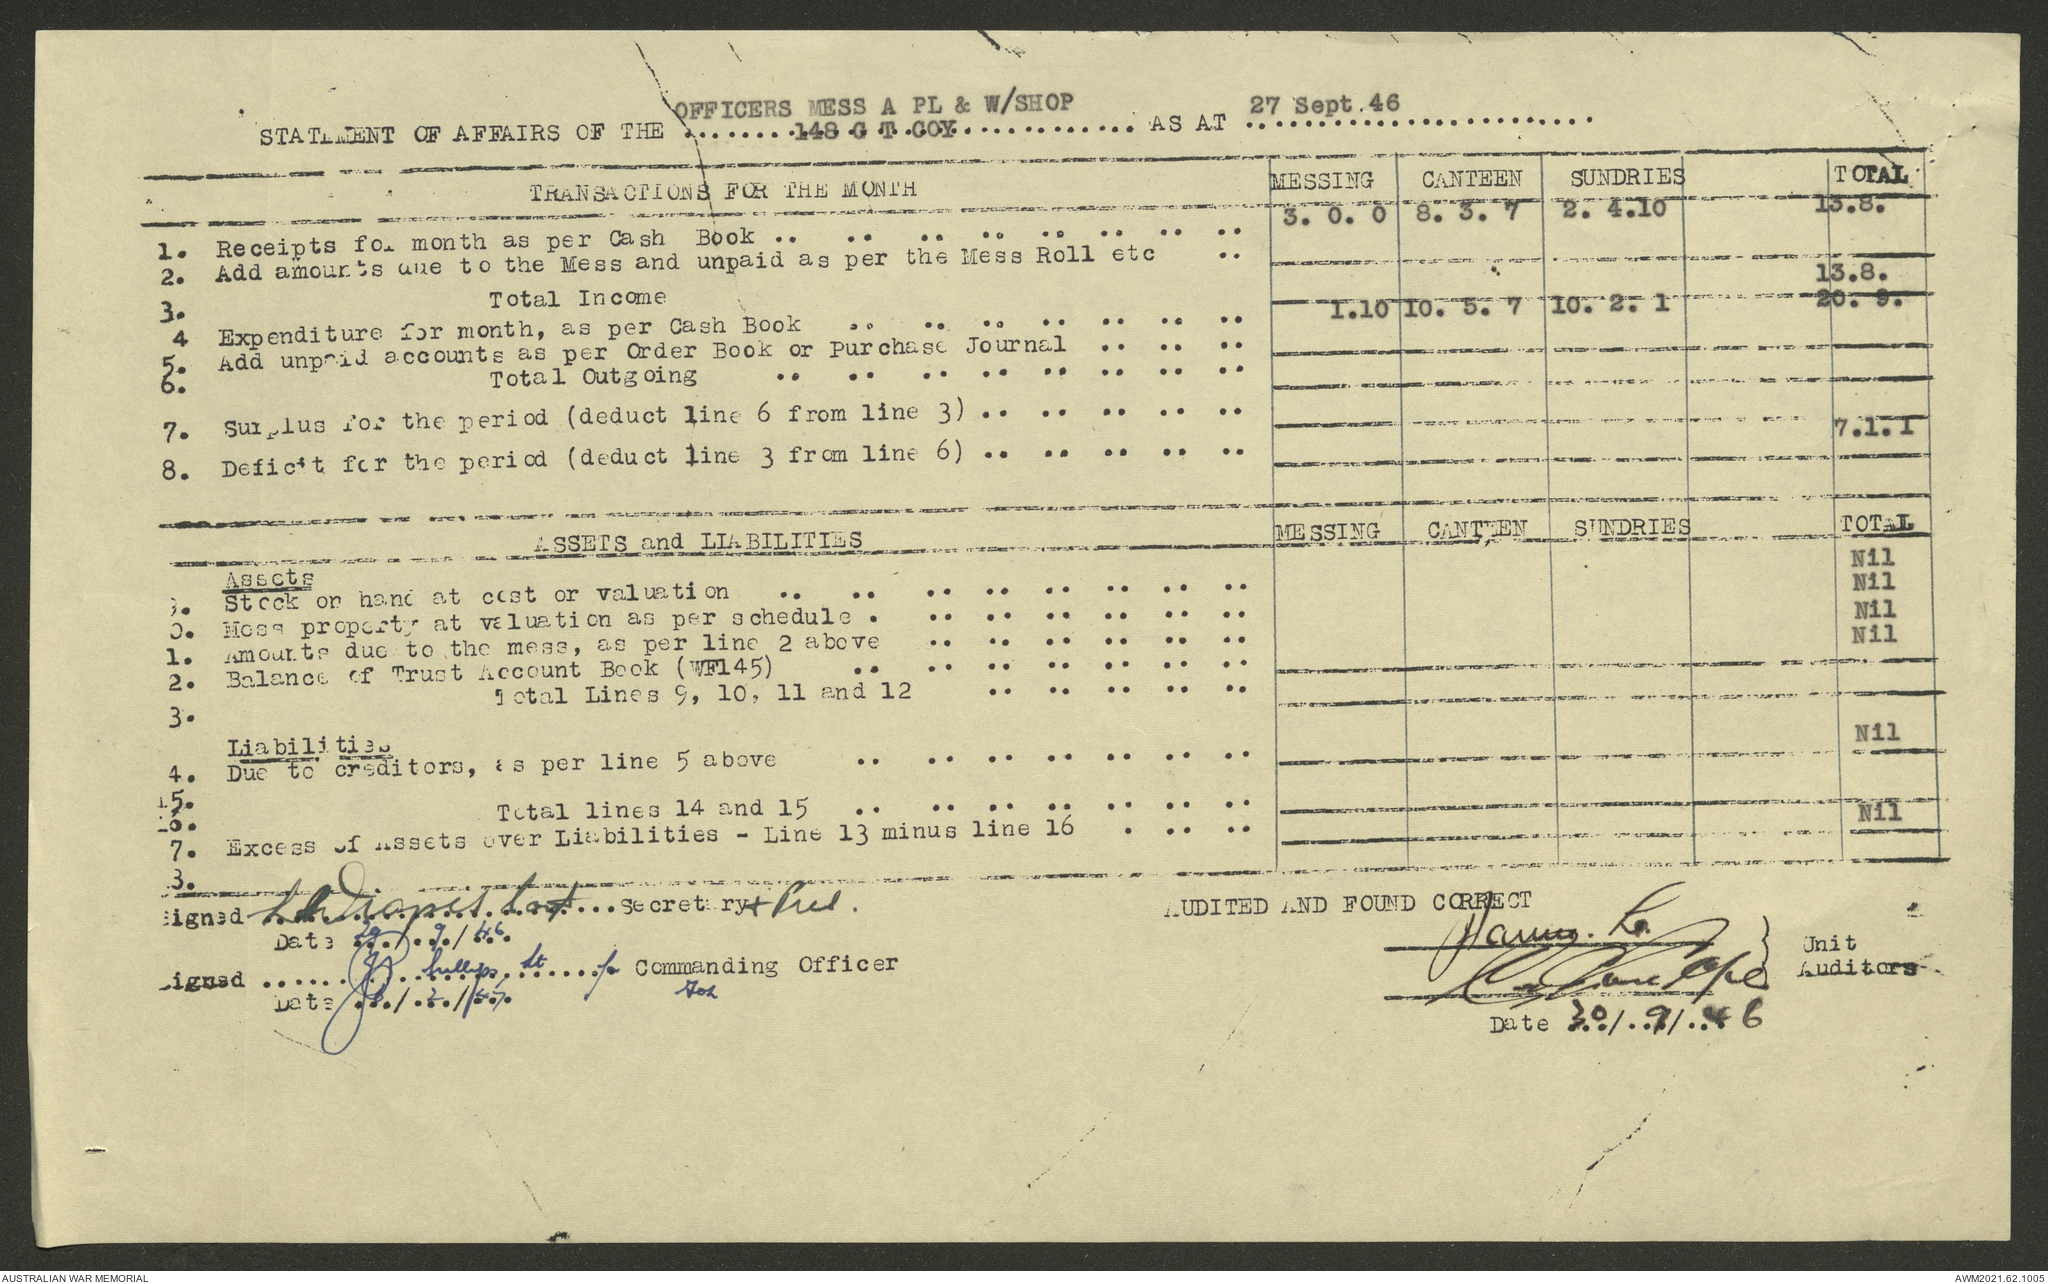 OFFICERS MESS A PL & W/SHOP 27 Sept.46
STATEMENT OF AFFAIRS OF THE ........148 G T COY............ AS AT ........................
TRANSACTIONS FOR THE MONTH MESSING CANTEEN SUNDRIES TOTAL
3. 0. 0 8. 3. 7 2. 4.10 13.8.
1. Receipts for month as per Cash Book .. .. .. .. .. .. .. ..
2. Add amounts due to the Mess and unpaid as per the Mess Roll etc ..
13.8.
3. Total Income
1.10 10. 5. 7 10. 2. 1 20. 9.
4 Expenditure for month, as per Cash Book .. .. .. .. .. .. ..
5. Add unpaid accounts as per Order Book or Purchase Journal .. .. ..
6. Total Outgoing .. .. .. .. .. .. .. ..
7. Surplus for the period (deduct line 6 from line 3) .. .. .. .. ..
7.1.1
8. Deficit for the period (deduct line 3 from line 6) .. .. .. .. ..
ASSETS and LIABILITIES MESSING CANTEEN SUNDRIES TOTAL
Assets Nil
9. Stock on hand at cost or valuation .. .. .. .. .. .. .. .. Nil
0. Mess property at valuation as per schedule . .. .. .. .. .. .. Nil
1. Amounts due to the mess, as per line 2 above .. .. .. .. .. .. Nil
2. Balance of Trust Account Book (WF145) .. .. .. .. .. .. ..
3. Total Lines 9, 10, 11 and 12 .. .. .. .. ..
Liabilities Nil
4. Due to creditors, as per line 5 above .. .. .. .. .. .. ..
15.
16. Total lines 14 and 15 .. .. .. .. .. .. ..
Nil
7. Excess of Assets over Liabilities - Line 13 minus line 16 . .. ..
8.
signed .................. Secretary + Pres. AUDITED AND FOUND CORRECT
Date 29/9/46.
signed ...... Phillips Lt ...... for Commanding Officer Unit
Auditors
Date /2/47.
Date 30/.9/..46
AUSTRALIAN WAR MEMORIAL AWM2021.62.1005